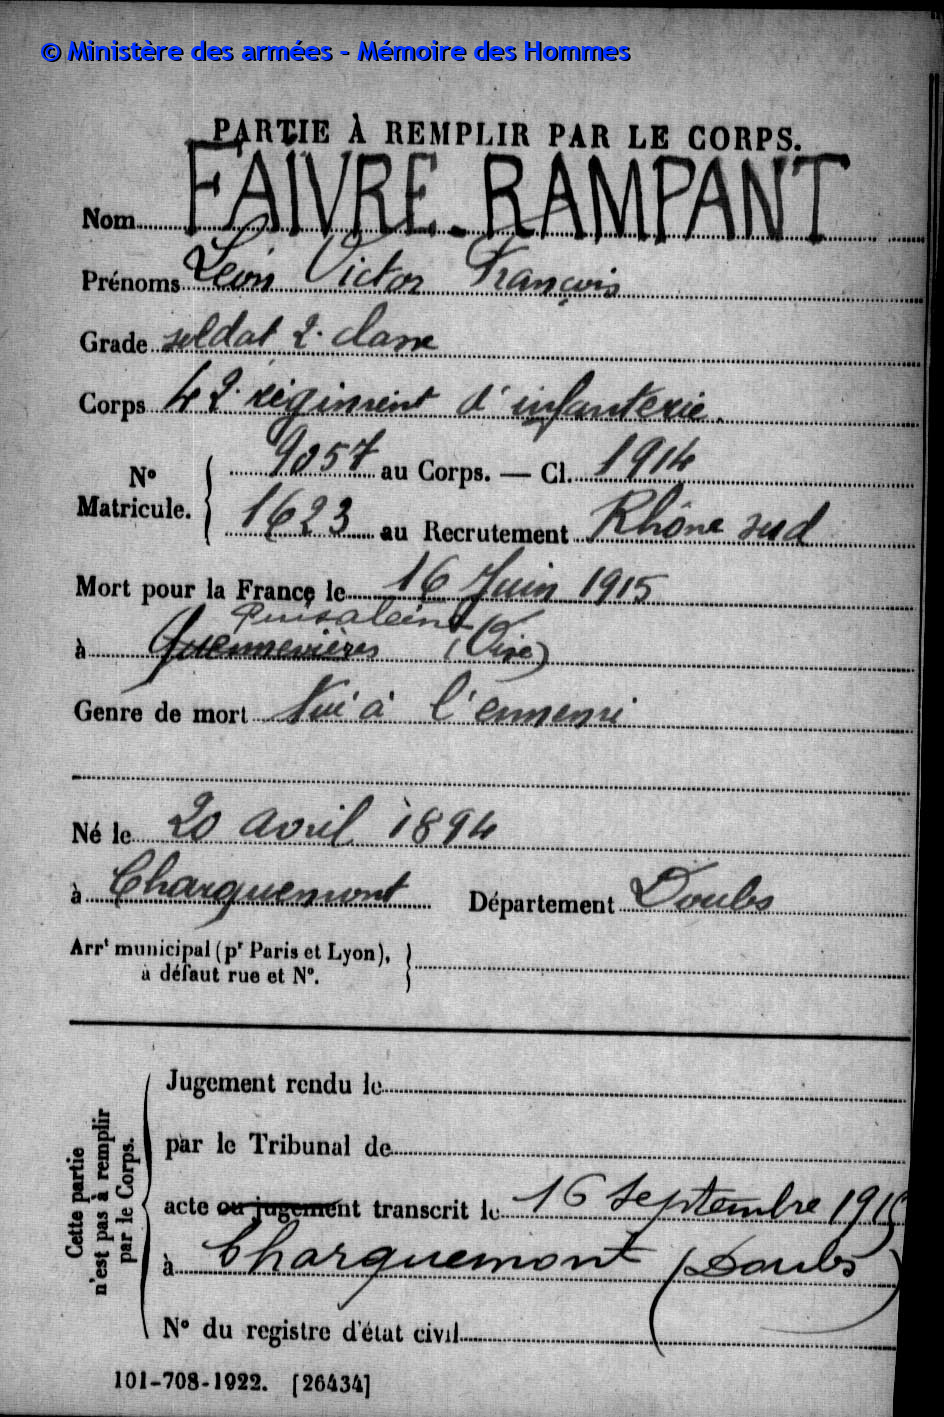 © Ministère des armées - Mémoire des Hommes
PARTIE À REMPLIR PAR LE CORPS.
Nom FAIVRE-RAMPANT
Prénoms Léon Victor François
Grade soldat 2e classe
Corps 42e régiment d'infanterie.
No Matricule. { 9057 au Corps. — Cl. 1914
1623 au Recrutement Rhône sud
Mort pour la France le 16 Juin 1915
Puisaleine
à Quennevières (Oise)
Genre de mort Tué à l'ennemi
Né le 20 avril 1894
à Charquemont Département Doubs
Arrt municipal (pr Paris et Lyon), }
à défaut rue et No.
Cette partie n'est pas à remplir par le Corps.
Jugement rendu le
par le Tribunal de
acte ou jugement transcrit le 16 septembre 1915
à Charquemont (Doubs)
No du registre d'état civil
101-708-1922. [26434]